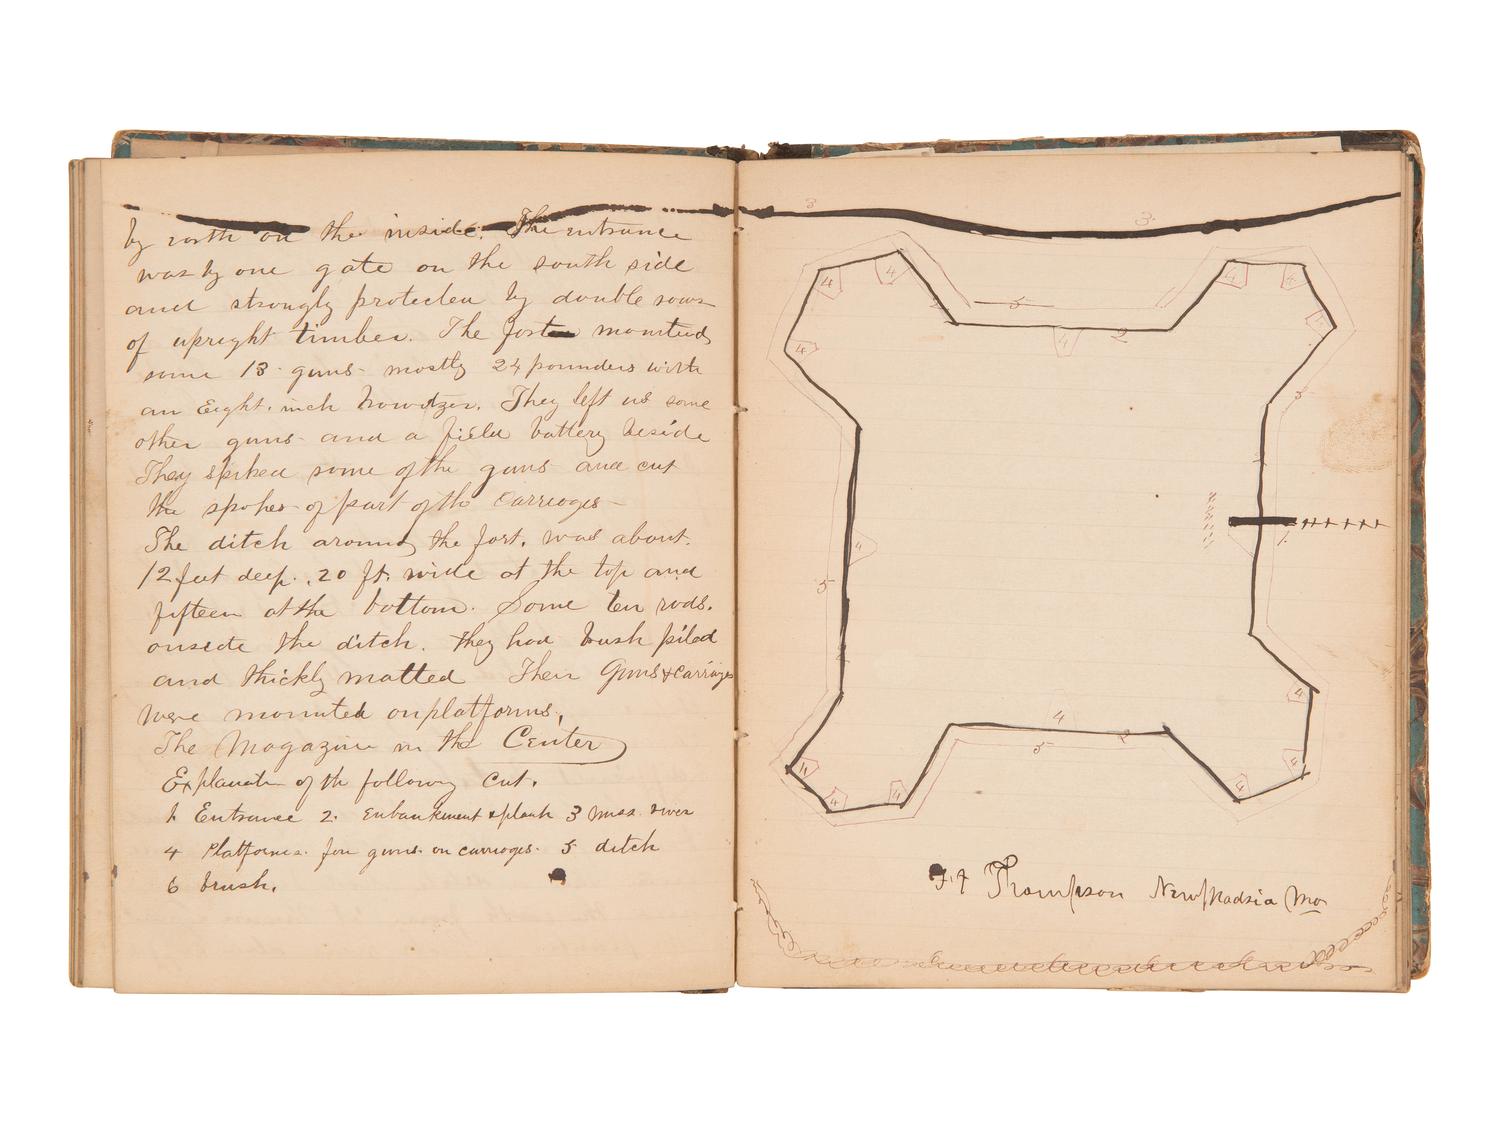 by earth on the inside. The entrance
was by one gate on the south side
and strongly protected by double rows
of upright timber. The fort mounted
some 13 guns mostly 24 pounders with
an Eight. inch howitzer. They left us some
other guns and a field battery beside
They spiked some of the guns and cut
the spokes of part of the carriages
The ditch around the fort, was about.
12 feet deep. 20 ft. wide at the top and
fifteen at the bottom. Some ten rods.
outside the ditch. they had brush piled
and thickly matted Their Guns & carriages
were mounted on platforms,
The Magazine in the Center
Explanation of the following cut.
1 Entrance 2. Enbankment & plank 3 Miss. river
4 Platforms. for guns on carriages. 5 ditch
6 brush.
3 3
4 4 4 4
5
4 4 2 4
5
4
5
1
2
4
4 5 2
4 4 4
4 4
Ft Thompson New Madria Mo